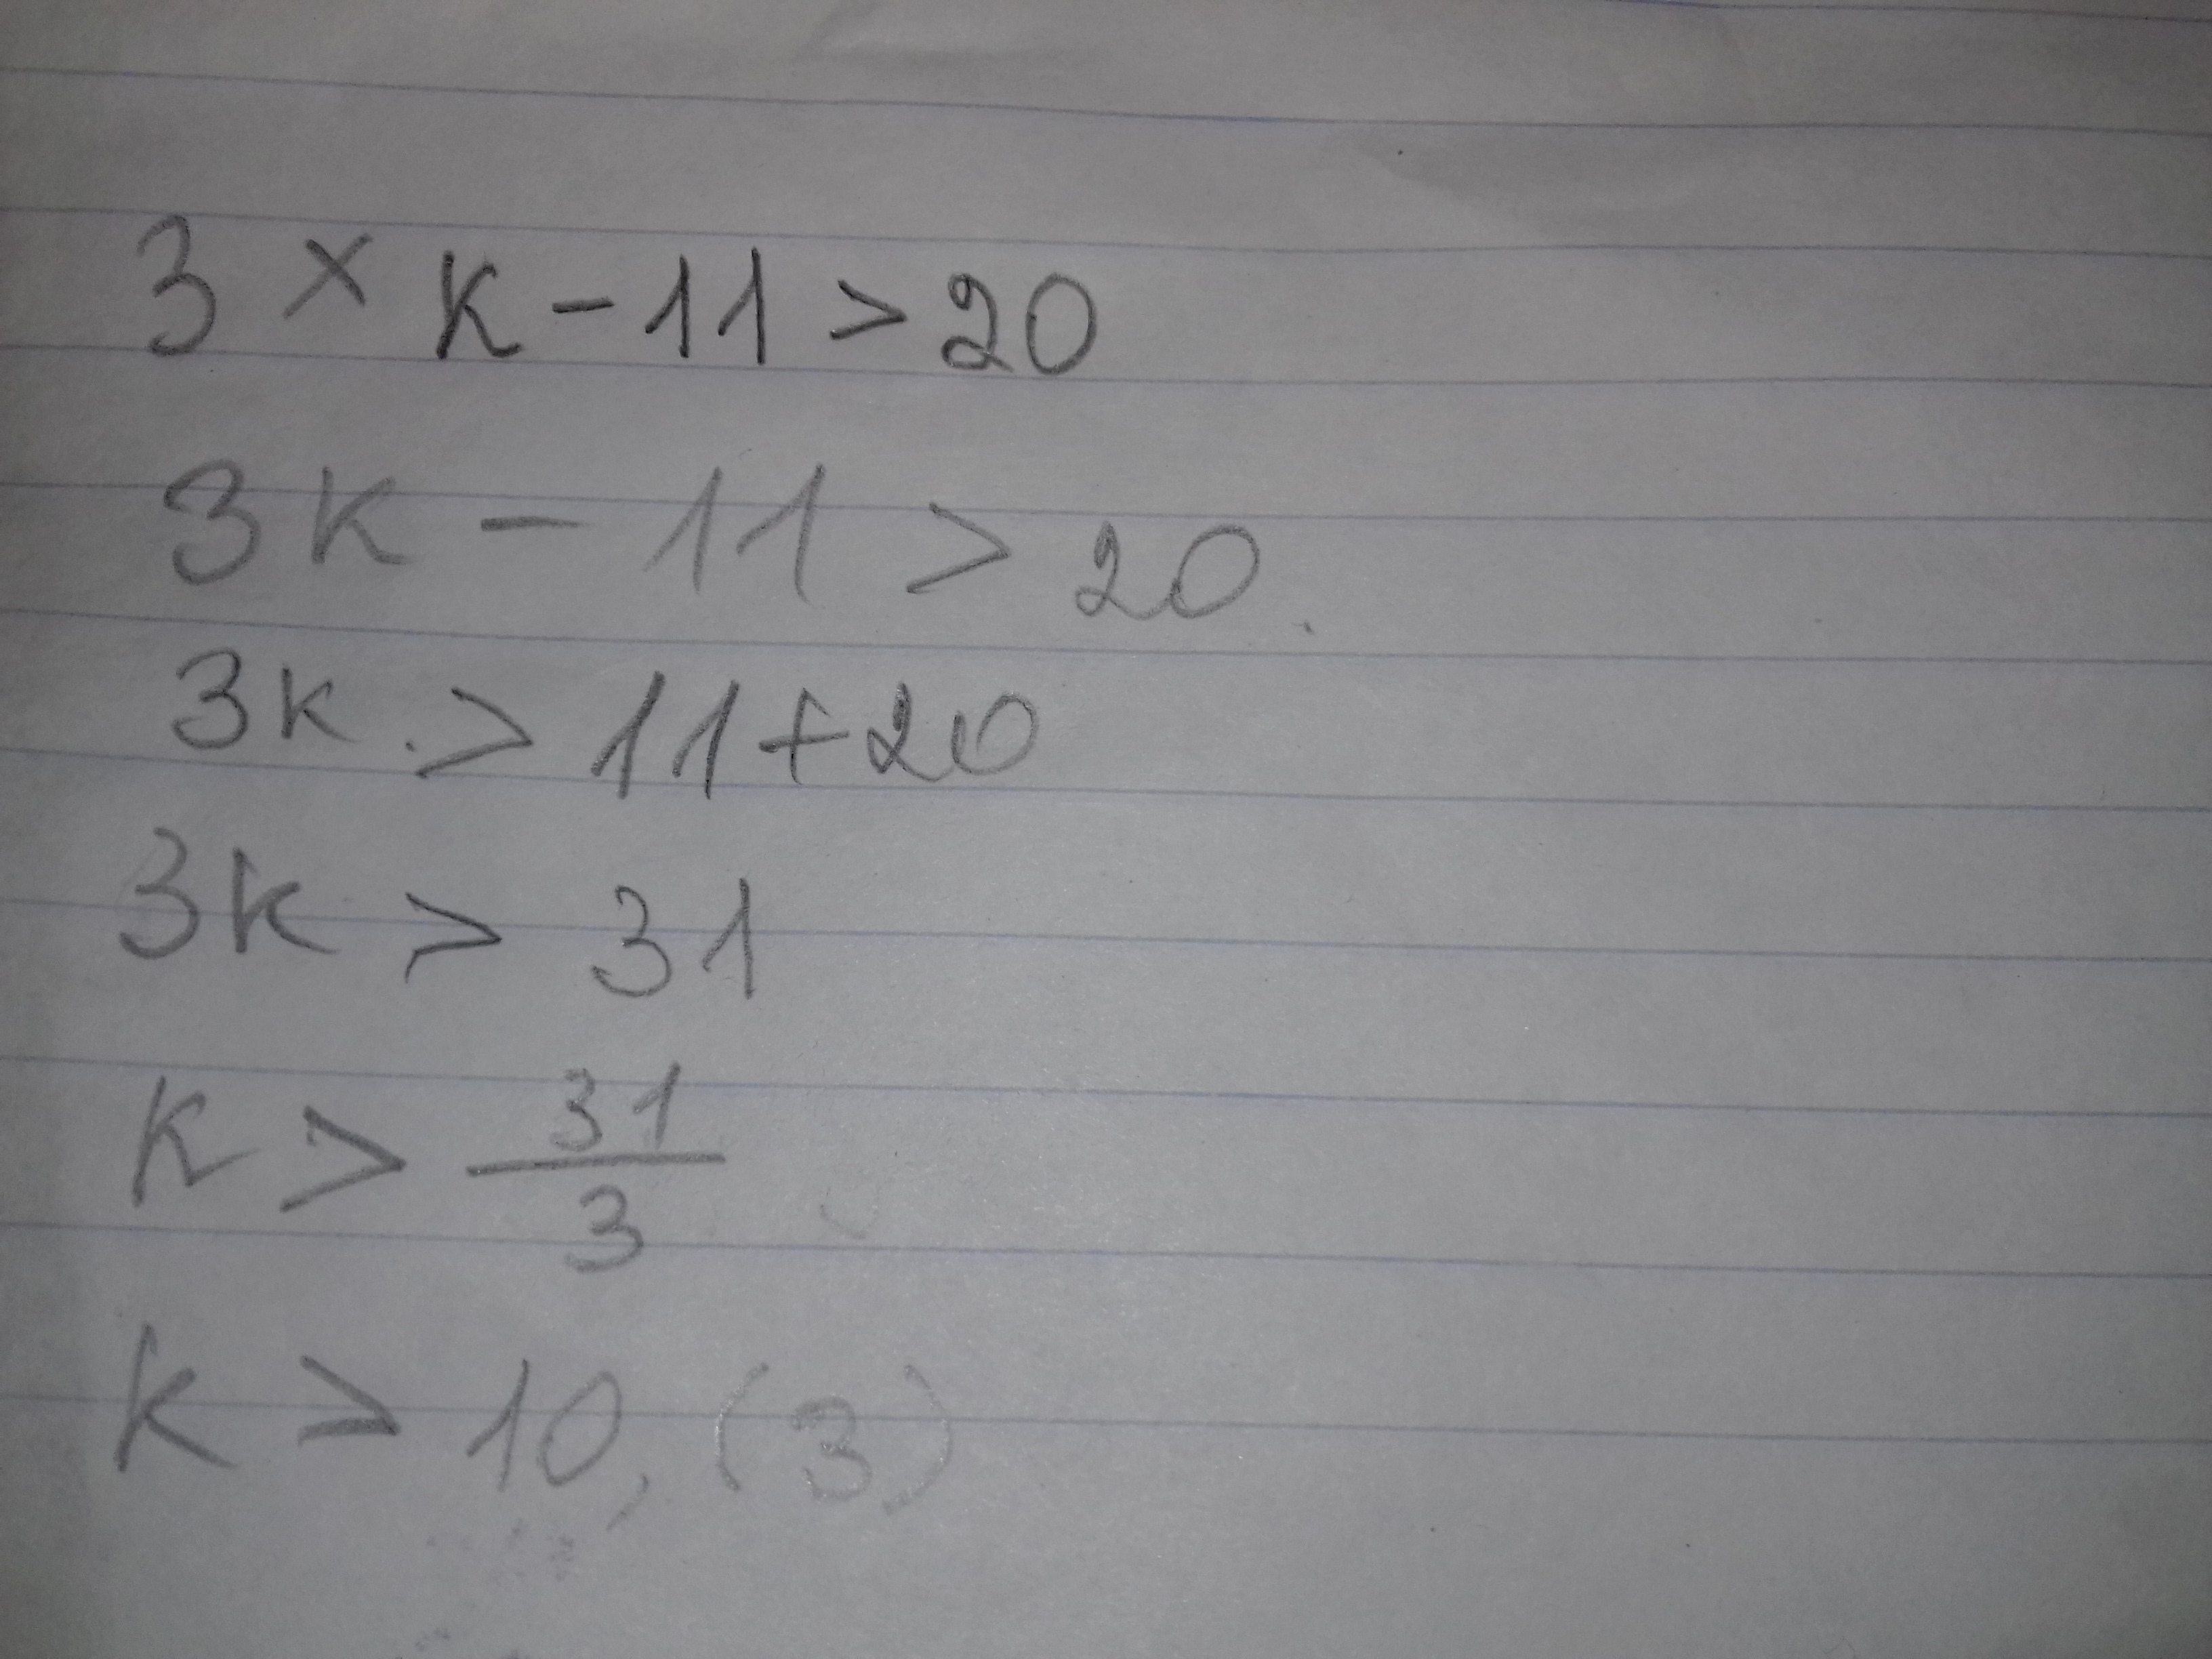 3 × k - 11 > 20
3k - 11 > 20.
3k . > 11 + 20
3k > 31
k > 31/3
k > 10,(3)